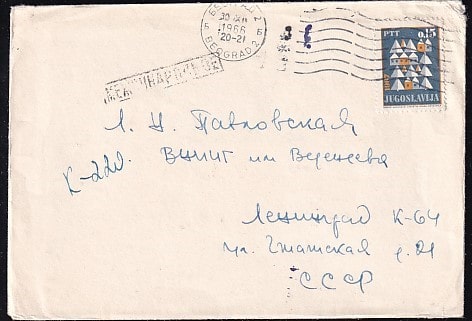 БЕОГРАД 2
30.XII
1966
20-21
Б Б
BEOGRAD 2
PTT 0.15
1967
JUGOSLAVIJA
МЕЖДУНАРОДНОЕ
Л. Н. Павловская
К-220. ВНИИГ им Веденеева
Ленинград К-64
ул. Гжатская д. 21
СССР